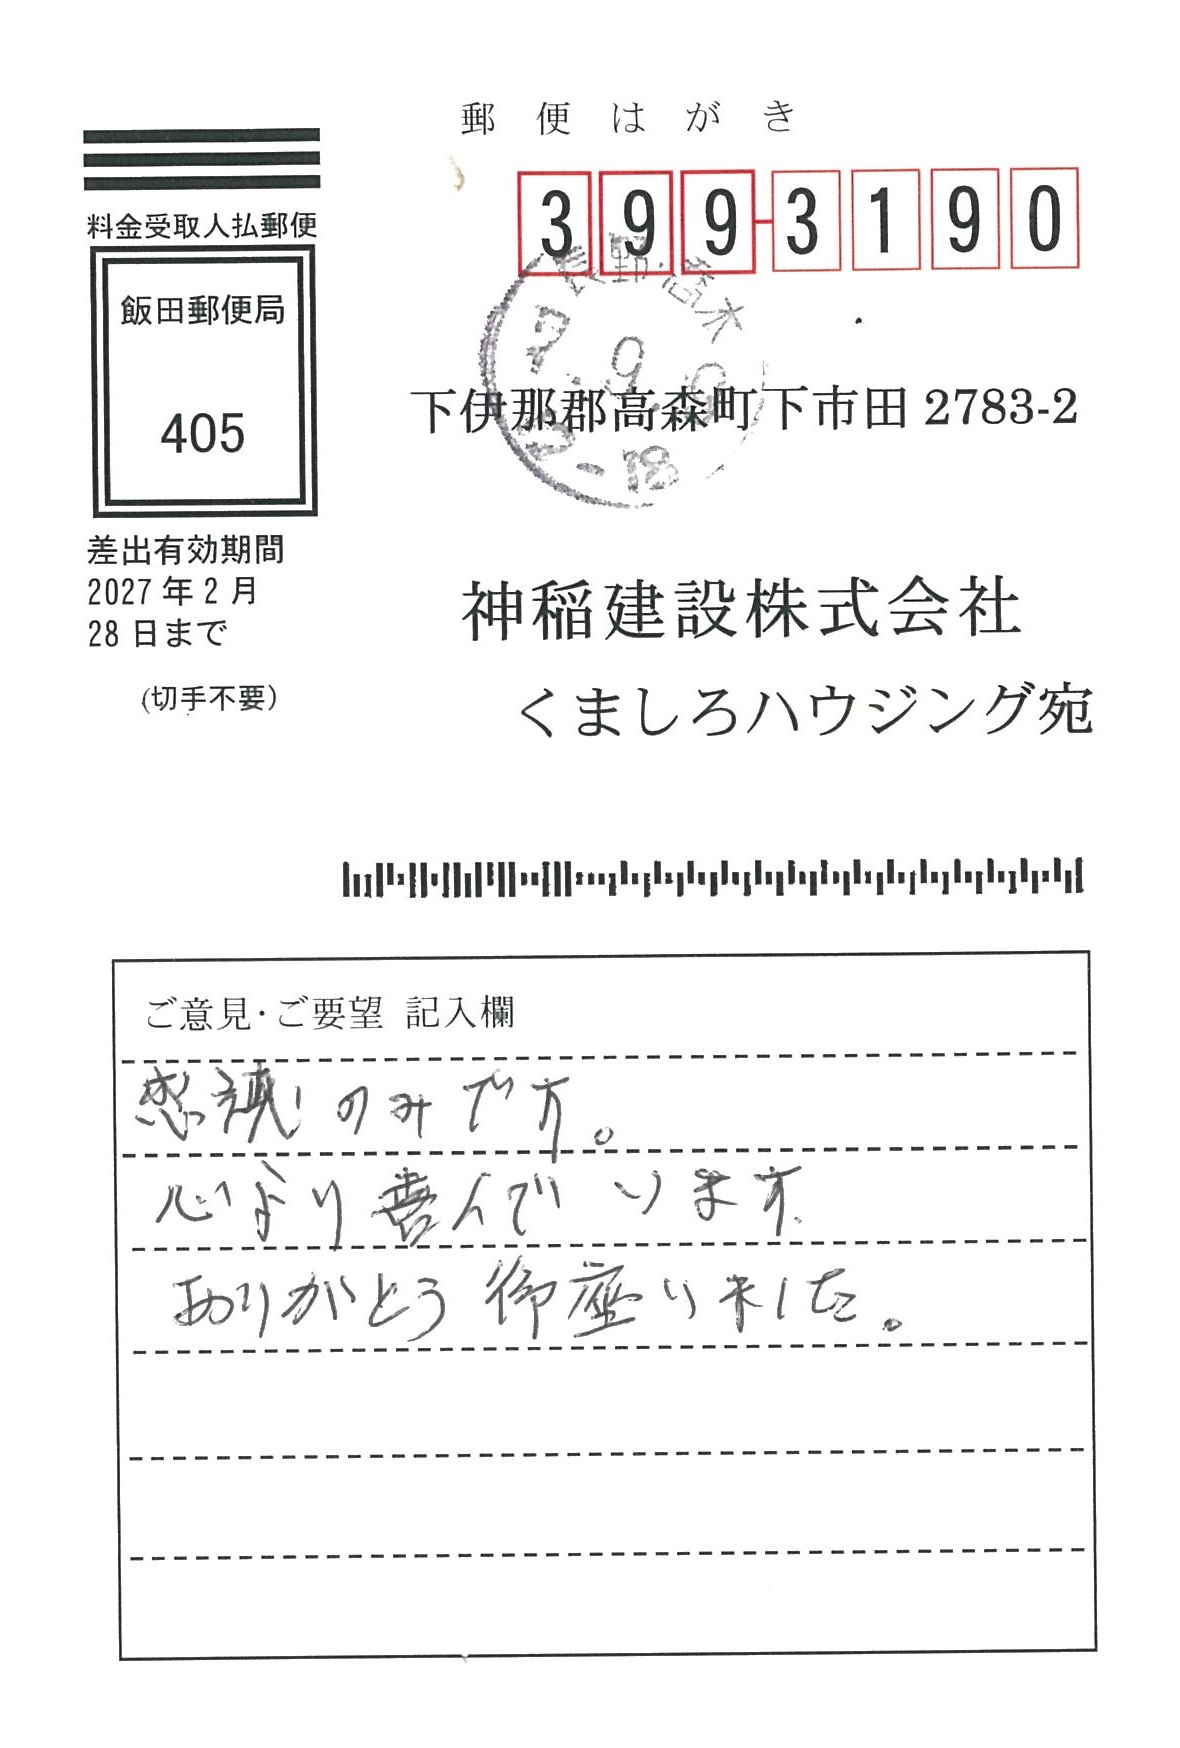 郵便はがき
399-3190
料金受取人払郵便
飯田郵便局
405
差出有効期間
2027年2月
28日まで
(切手不要)
長野・喬木
7.9.9
12-18
下伊那郡高森町下市田2783-2
神稲建設株式会社
くましろハウジング宛
ご意見・ご要望 記入欄
感謝のみです。
心より喜んでいます.
ありがとう御座いました。